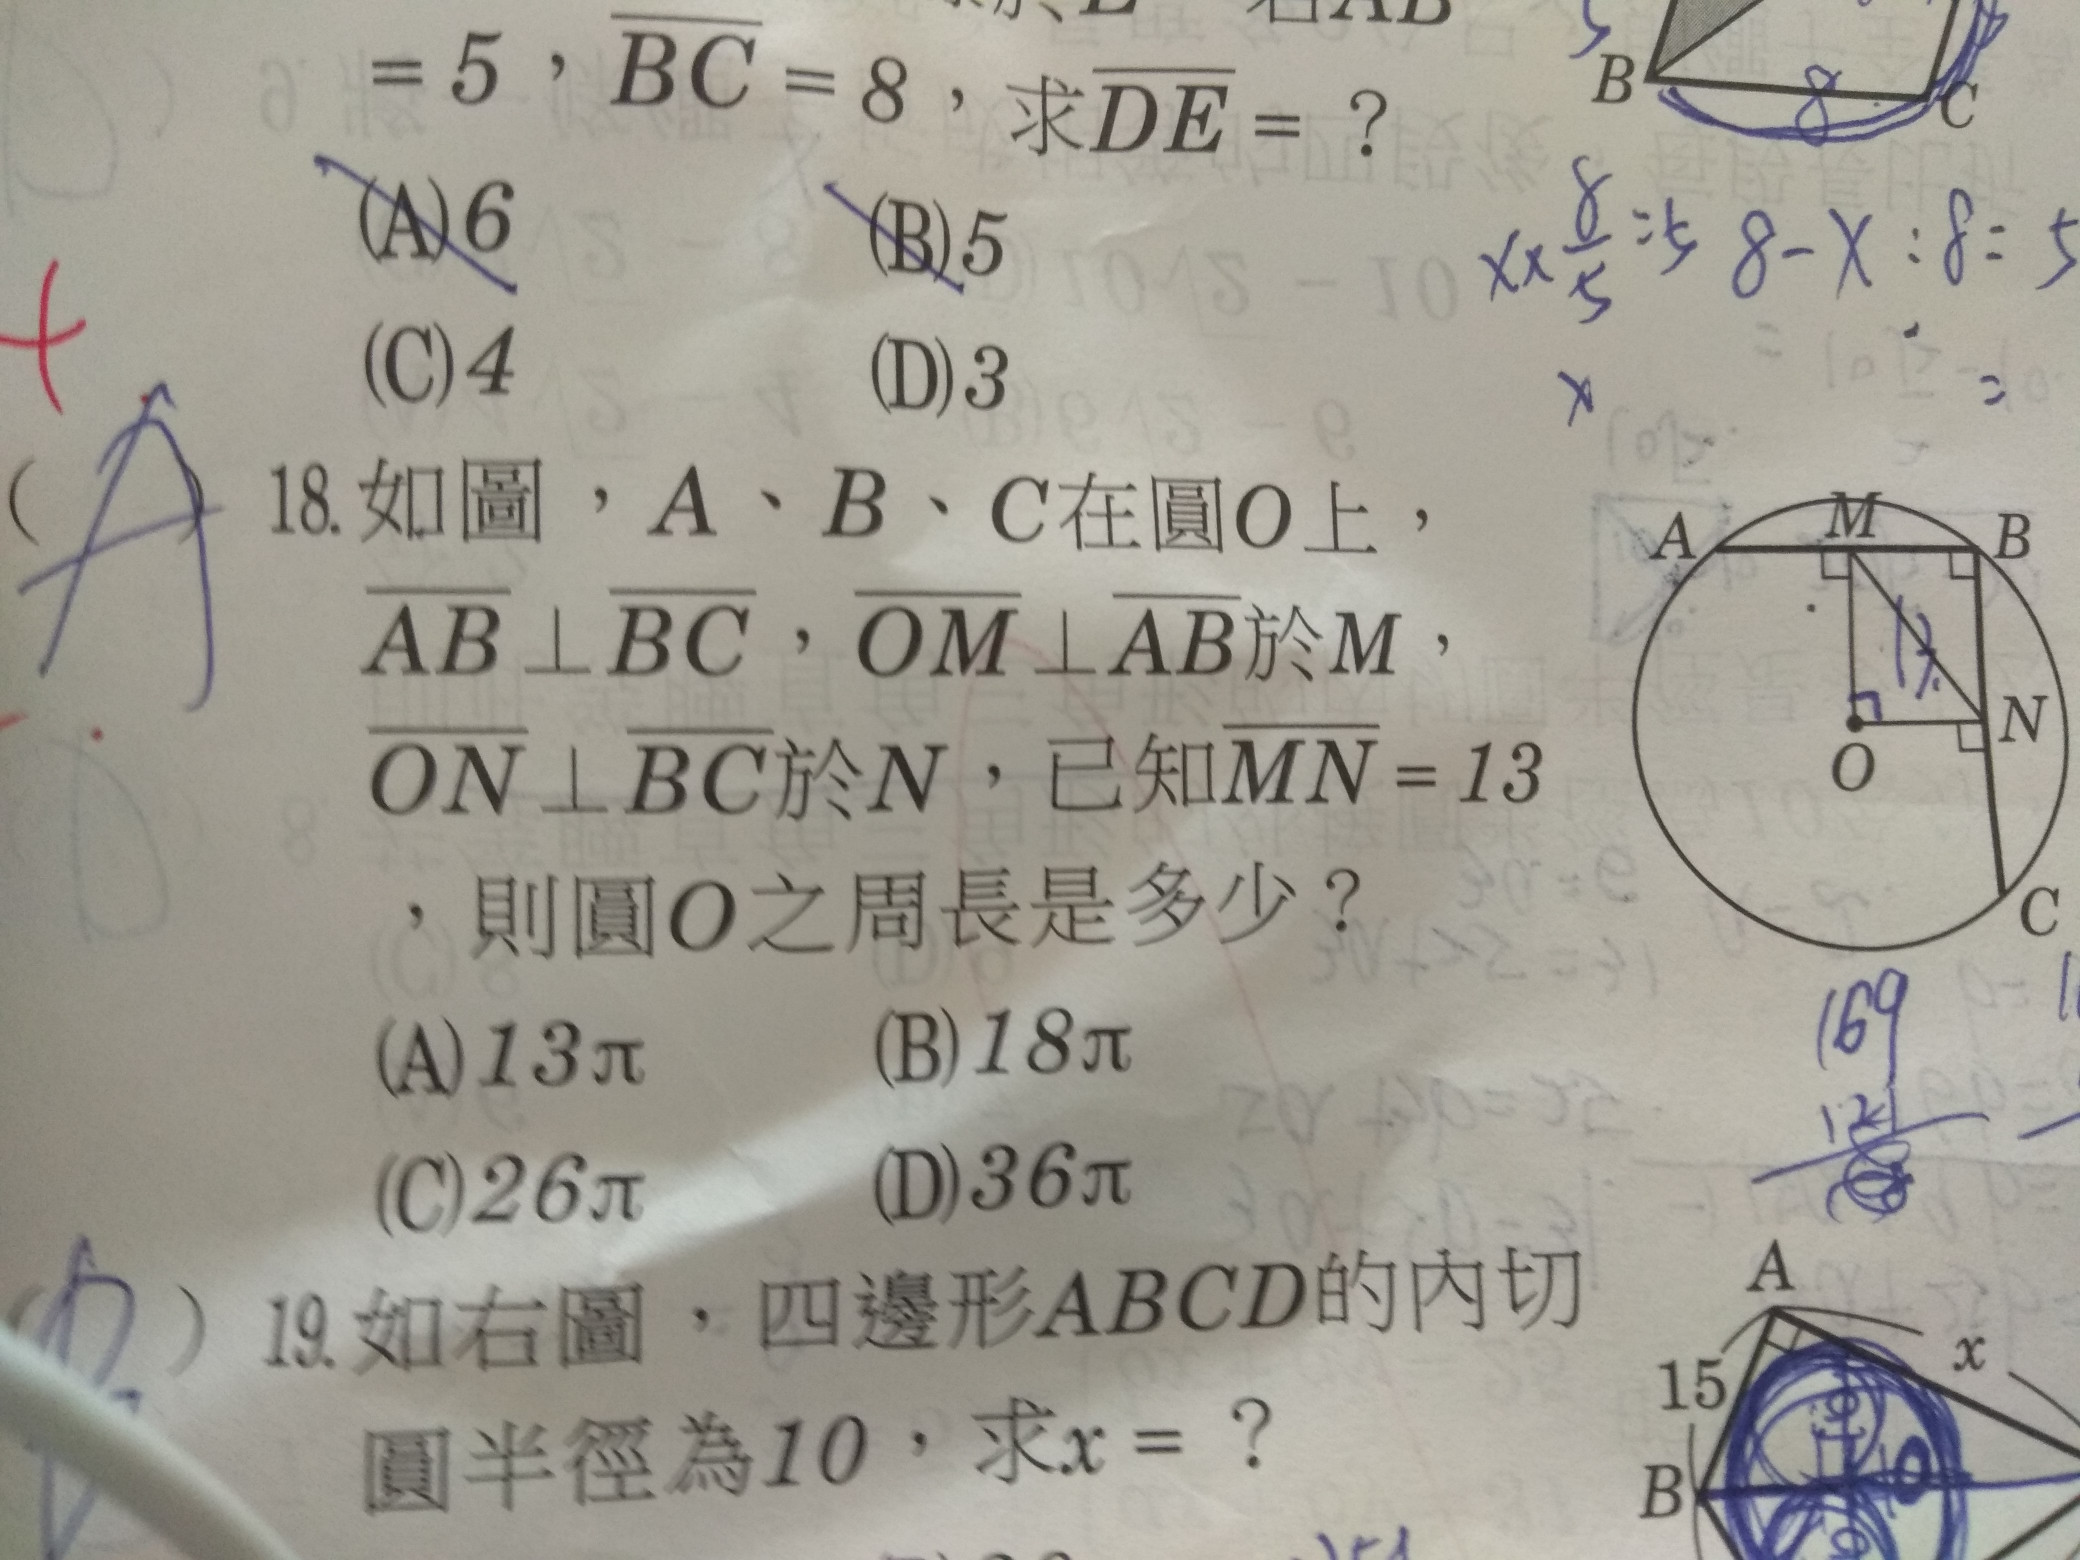 = 5，BC = 8，求DE = ？
(A)6 (B)5
(C)4 (D)3
5
B 8 C
x× 8/5 =5 8-x:8=5
x =
A
18.如圖，A、B、C在圓O上，
AB⊥BC，OM⊥AB於M，
ON⊥BC於N，已知MN = 13
，則圓O之周長是多少？
(A)13π (B)18π
(C)26π (D)36π
A M B
13
O N
C
169
B
19.如右圖，四邊形ABCD的內切
圓半徑為10，求x = ？
A
15 x
B 10